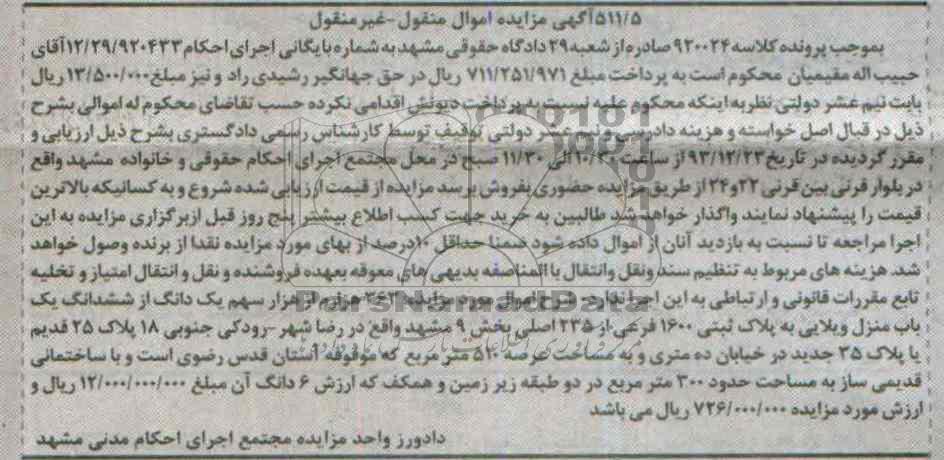 ۵۱۱/۵آگهی مزایده اموال منقول-غیرمنقول
بموجب پرونده کلاسه ۹۲۰۰۲۴ صادره از شعبه ۲۹ دادگاه حقوقی مشهد به شماره بایگانی اجرای احکام ۱۲/۲۹/۹۲۰۴۳۳آقای
حبیب اله مقیمیان محکوم است به پرداخت مبلغ ۷۱۱/۲۵۱/۹۷۱ ریال در حق جهانگیر رشیدی راد و نیز مبلغ ۱۳/۵۰۰/۰۰۰ ریال
بابت نیم عشر دولتی نظر به اینکه محکوم علیه نسبت به پرداخت دیونش اقدامی نکرده حسب تقاضای محکوم له اموالی بشرح
ذیل در قبال اصل خواسته و هزینه دادرسی و نیم عشر دولتی توقیف توسط کارشناس رسمی دادگستری بشرح ذیل ارزیابی و
مقرر گردیده در تاریخ ۹۳/۱۲/۲۳ از ساعت ۱۰/۳۰ الی ۱۱/۳۰ صبح در محل مجتمع اجرای احکام حقوقی و خانواده مشهد واقع
در بلوار قرنی بین قرنی ۲۲و۲۴ از طریق مزایده حضوری بفروش برسد مزایده از قیمت ارزیابی شده شروع و به کسانیکه بالاترین
قیمت را پیشنهاد نمایند واگذار خواهد شد طالبین به خرید جهت کسب اطلاع بیشتر پنج روز قبل از برگزاری مزایده به این
اجرا مراجعه تا نسبت به بازدید آنان از اموال داده شود ضمنا حداقل ۱۰درصد از بهای مورد مزایده نقدا از برنده وصول خواهد
شد. هزینه های مربوط به تنظیم سند ونقل وانتقال بالمناصفه بدیهی های معوقه بعهده فروشنده و نقل و انتقال امتیاز و تخلیه
تابع مقررات قانونی و ارتباطی به این اجرا ندارد شرح اموال مورد مزایده: هزارم از هزار سهم یک دانگ از ششدانگ یک
باب منزل ویلایی به پلاک ثبتی ۱۶۰۰ فرعی از ۲۳۵ اصلی بخش ۹ مشهد واقع در رضا شهر-رودکی جنوبی ۱۸ پلاک ۲۵ قدیم
یا پلاک ۳۵ جدید در خیابان ده متری و به مساحت عرصه ۵۲۰ متر مربع که موقوفه آستان قدس رضوی است و با ساختمانی
قدیمی ساز به مساحت حدود ۳۰۰ متر مربع در دو طبقه زیر زمین و همکف که ارزش ۶ دانگ آن مبلغ ۱۲/۰۰۰/۰۰۰/۰۰۰ ریال و
ارزش مورد مزایده ۷۲۶/۰۰۰/۰۰۰ ریال می باشد
دادورز واحد مزایده مجتمع اجرای احکام مدنی مشهد
ParsNamadData